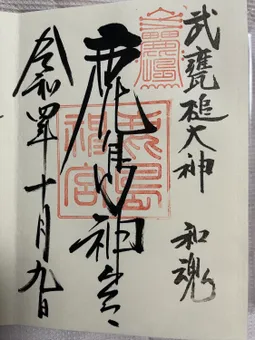 武甕槌大神 和魂
鹿島神宮
鹿島
神宮
令和四年十月九日